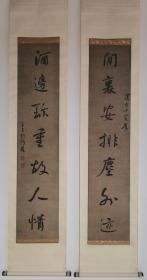 閒裏安排塵外迹
酒邊珎重故人情